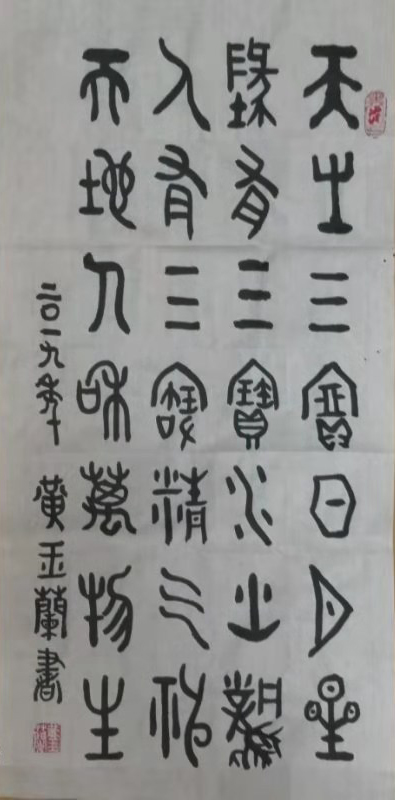 天有三寶日月星
地有三寶水火風
人有三寶精气神
天地人和萬物生
二〇一九年 黃玉蘭書